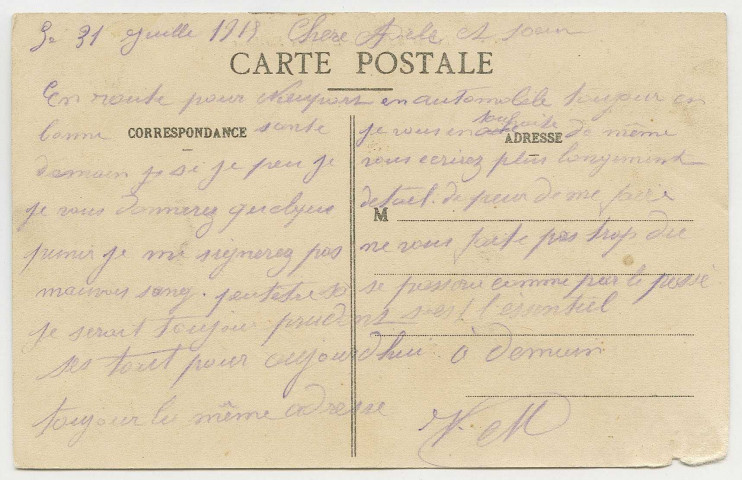 31 Juillet 1915 Chere Adele et soeur
CARTE POSTALE
En route pour Nieuport en automobile toujour en
bonne CORRESPONDANCE sante je vous en souhaite ADRESSE de même
demain si je peu je vous ecrirez plus longuement
je vous donnerez quelques detail. de peur de me faire
M
punir je me signerez pas ne vous faite pas trop du
mauvais sang. peutetre se passera comme par le passé
je serait toujour prudent s'est l'esentiel
ses tout pour aujourdhui à demain
toujour la même adresse
V. M